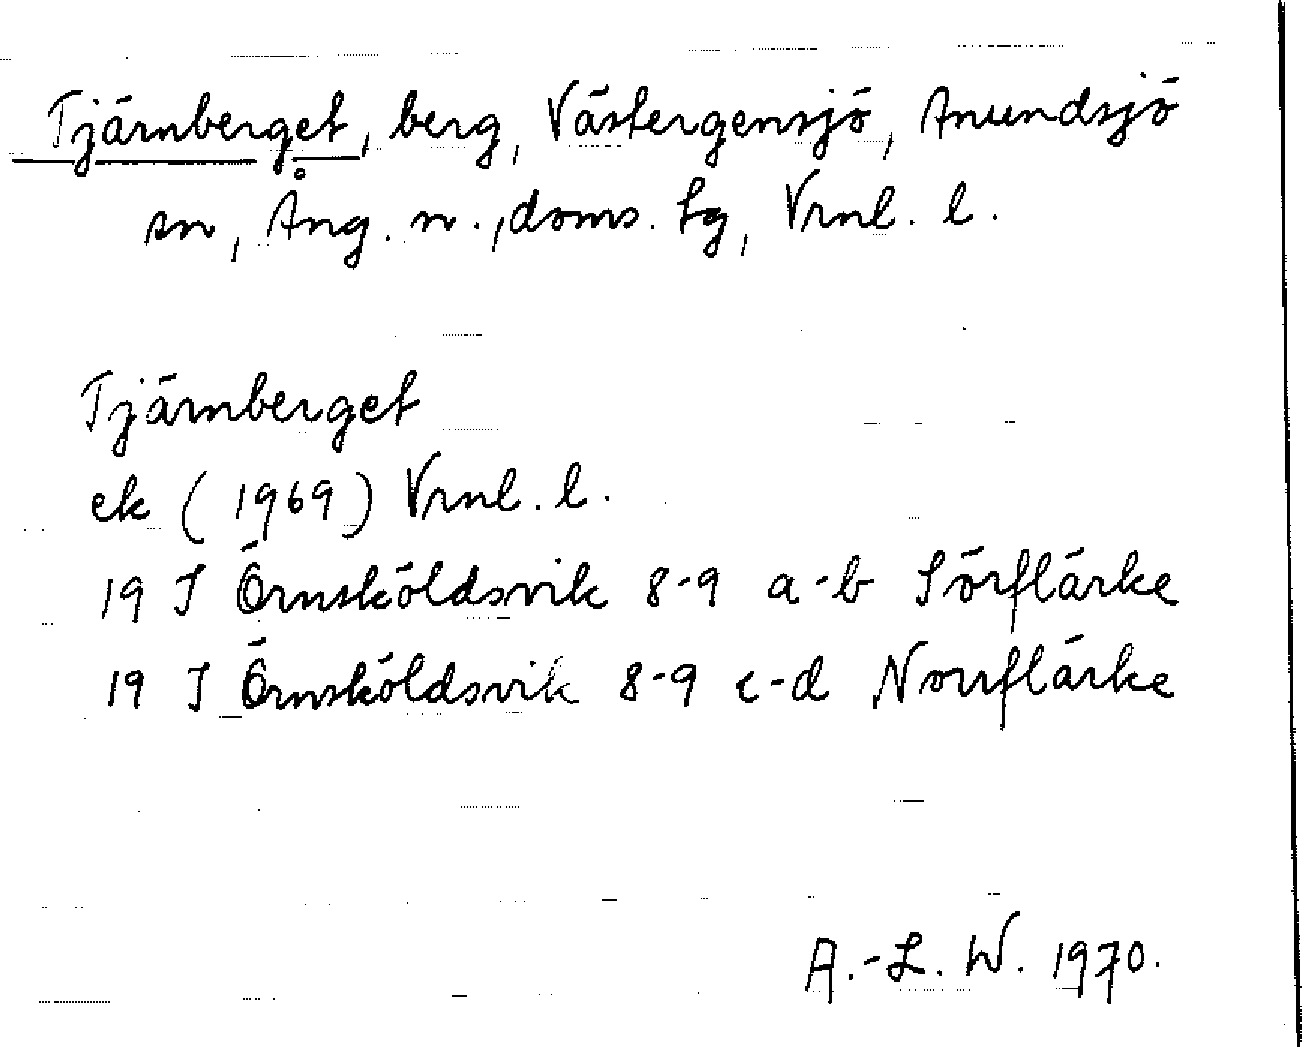 Tjärnberget, berg, Västergensjö, Anundsjö
sn, Ång. n., doms. lg, Vrnl. l.
Tjärnberget
ek (1969) Vrnl. l.
19 J Örnsköldsvik 8-9 a-b Sörflärke
19 J Örnsköldsvik 8-9 c-d Norrflärke
A.-L. W. 1970.